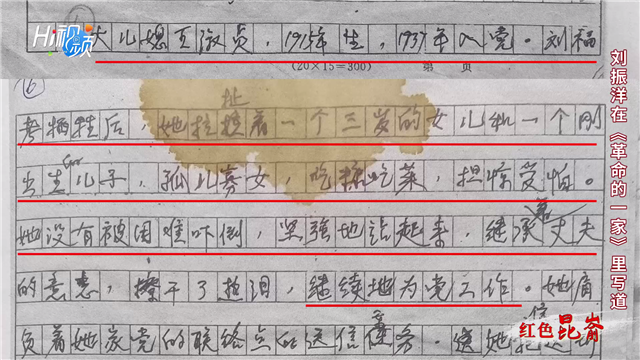 Hi视频
大儿媳王淑贞，1915年生，1937年入党。刘福
(20×15=300) 第 页
⑥
考牺牲后，她拉扯着一个三岁的女儿和一个刚
出生儿子，孤儿寡女，吃糠吃菜，担惊受怕。
她没有被困难吓倒，坚强地站起来，继承着丈夫
的意志，擦干了热泪，继续地为党工作。她肩
负着她家党的联络点的送信任务。送她
刘振洋在《革命的一家》里写道
红色昆嵛